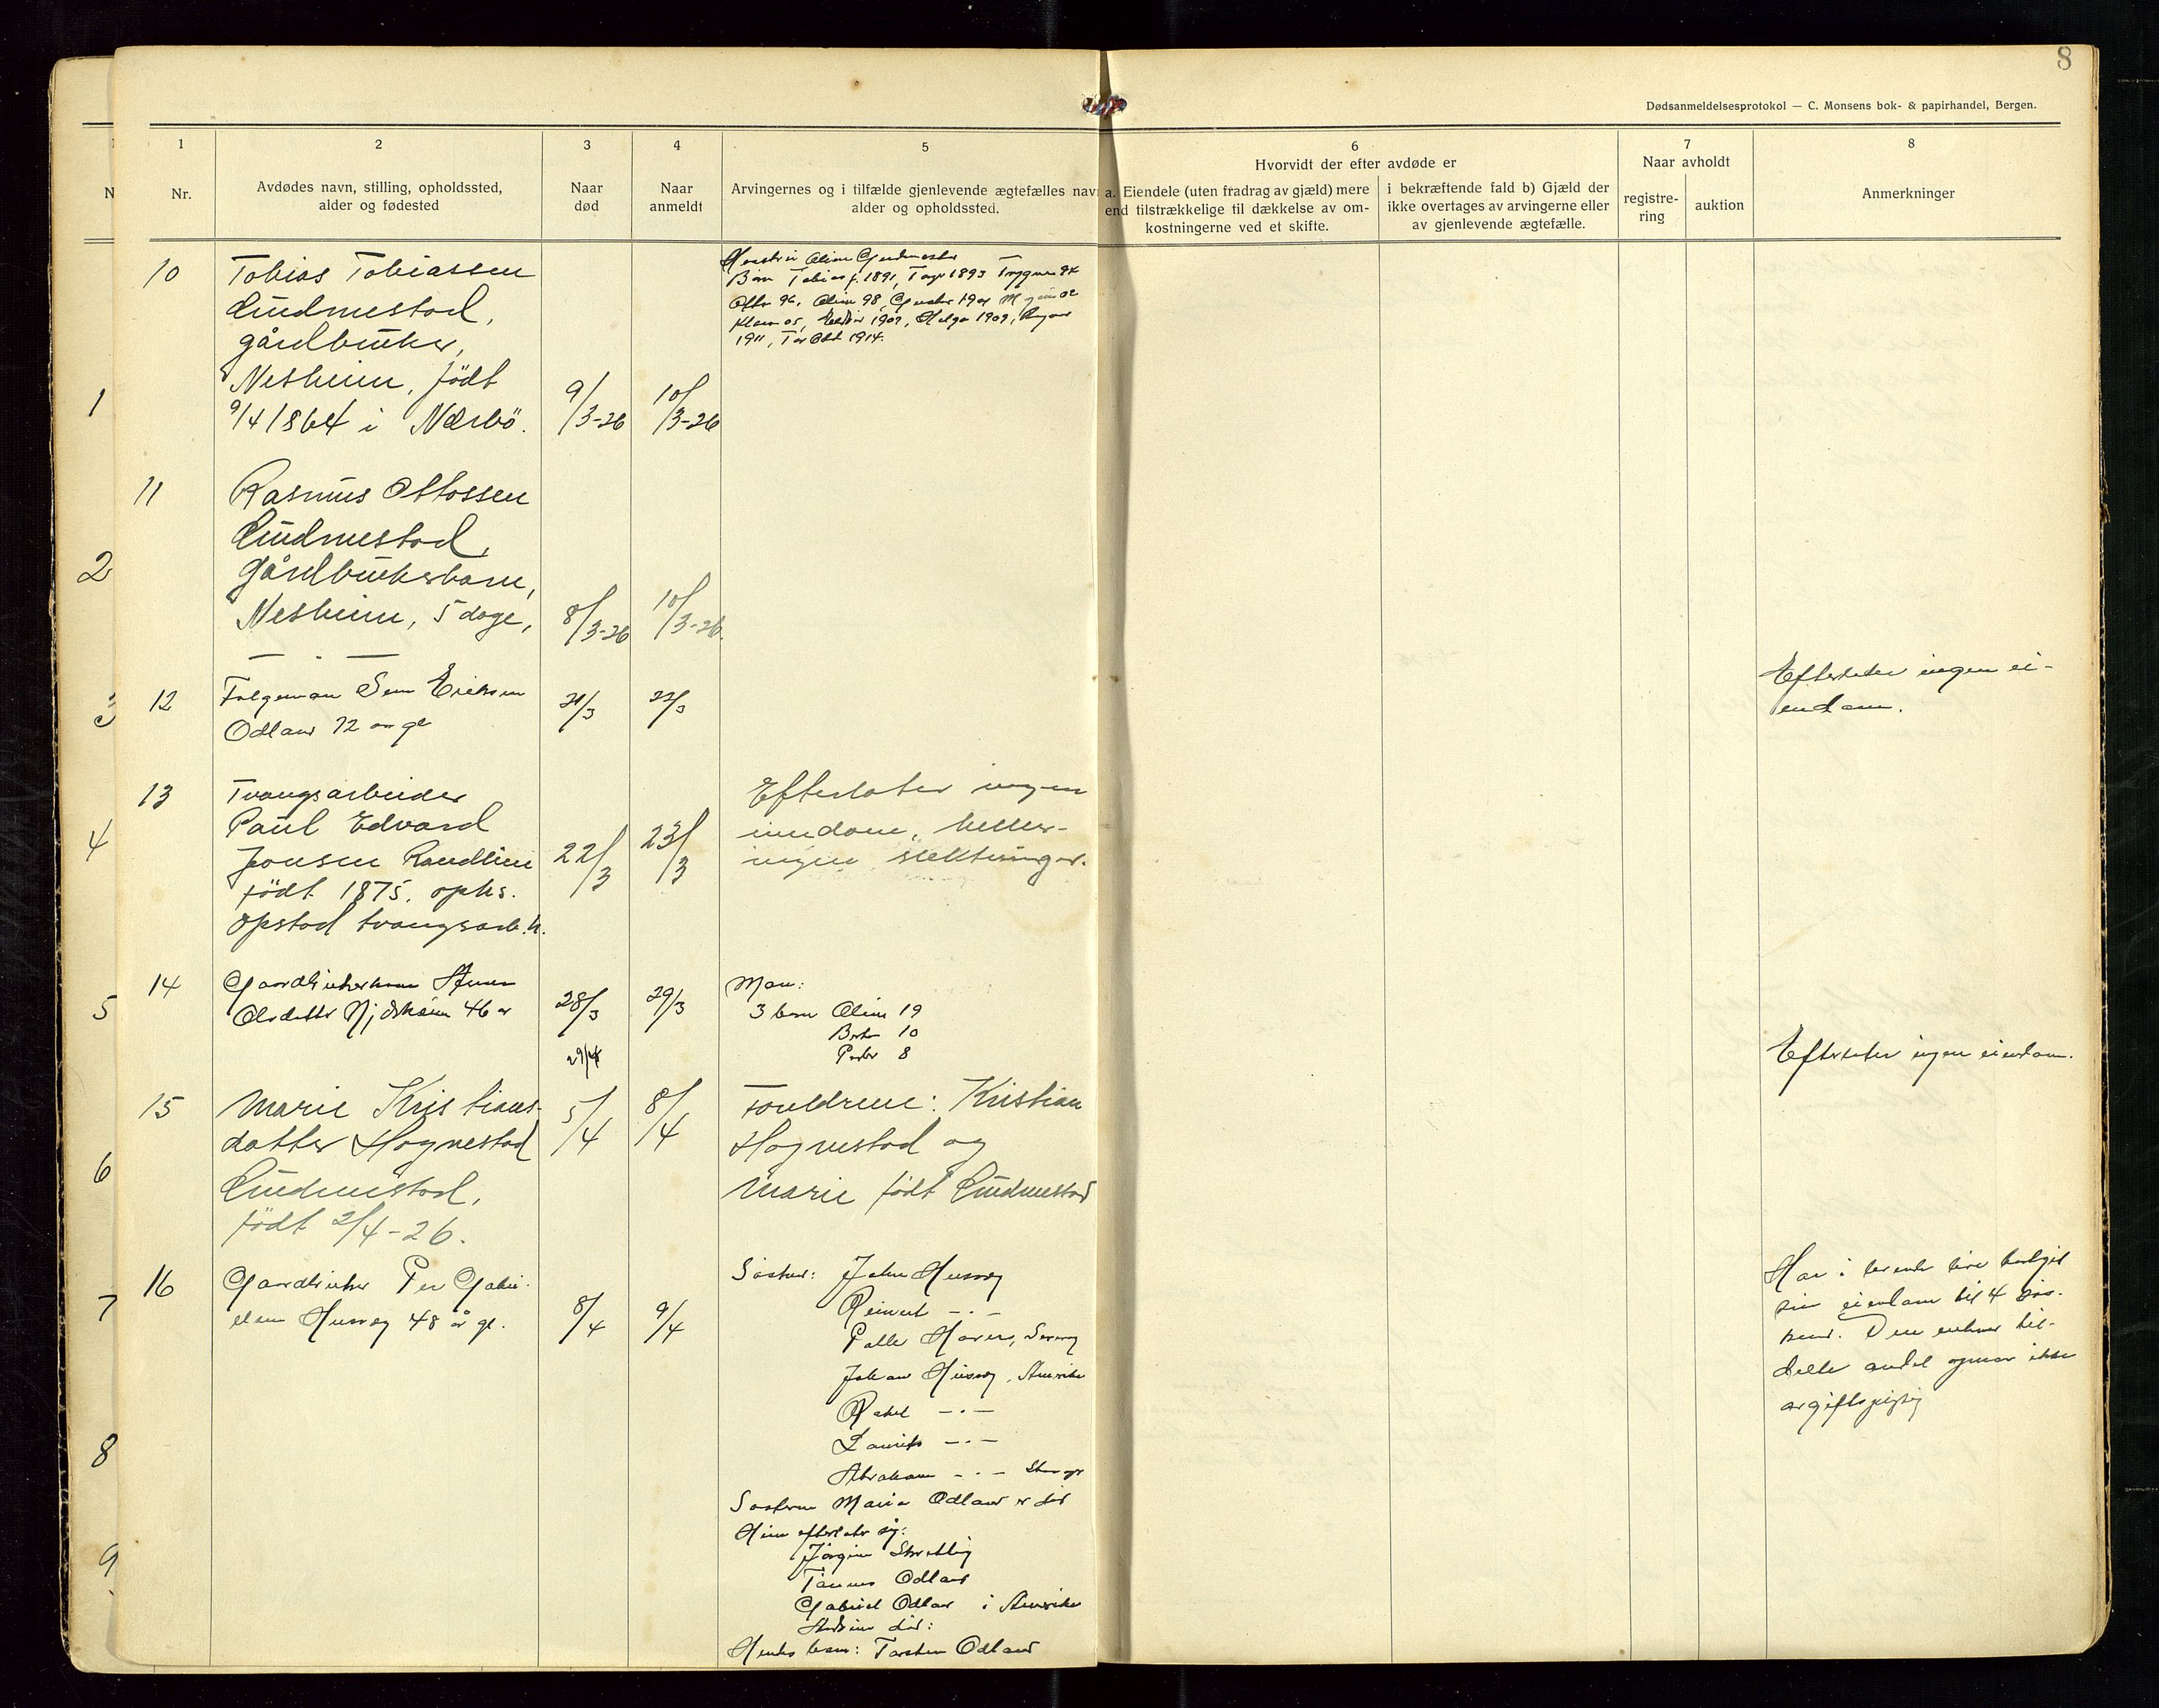 8
Dødsanmeldelsesprotokol — C. Monsens bok- & papirhandel, Bergen.
1
2
3
4
5
6
7
8
Nr.
Avdødes navn, stilling, opholdssted,
alder og fødested
Naar
død
Naar
anmeldt
Arvingernes og i tilfælde gjenlevende ægtefælles navn
alder og opholdssted.
Hvorvidt der efter avdøde er
a. Eiendele (uten fradrag av gjæld) mere
end tilstrækkelige til dækkelse av om-
kostningerne ved et skifte.
i bekræftende fald b) Gjæld der
ikke overtages av arvingerne eller
av gjenlevende ægtefælle.
Naar avholdt
registre-
ring
auktion
Anmerkninger
10
Tobias Tobiassen
Gudmestad,
gårdbruker,
Nesheim, födt
9/4 1864 i Nærbö.
9/3-26
10/3-26
Oline Gudmestad
Børn Tobias f. 1891, 1893 Trygve 94
Otto 96, Oline 98, 1901
05, 1907, Helga 1909,
1911, 1914.
11
Rasmus Ottossen
Gudmestad,
gårdbrukerbarn,
Nesheim, 5 dage,
8/3-26
10/3-26.
12
Folgeman Sem Eriksen
Odland 72 aar gl
21/3
22/3
Efterlater ingen ei-
endom.
13
Tvangsarbeider
Paul Edvard
Jonsen Randlini
födt 1875. opks.
Opstad tvangsarb.h.
22/3
23/3
Efterlater ingen
eindom, heller-
ingen slektninger.
14
Gaardbrukerkone Anna
Olsdatter Njærheim 46 ar
28/3
29/3
29/4
Man:
3 barn Oline 19
Berta 10
Peder 8
Efterlater ingen eiendom.
15
Marie Kristians-
datter Hognestad
Gudmestad,
födt 2/4-26.
5/4
8/4
Foreldrene: Kristian
Hognestad og
Marie födt Gudmestad
16
Gaardbruker Per Gabri-
elsen Husvæg 48 år gl.
8/4
9/4
Søsken: John Husvæg
Reinert —.—
Palle Haver,
Johan Husvæg, Amerika
Rakel —.—
Laurits —.—
Abraham —.—
Søsteren Maria Odland er død
Hun efterlater sig:
Jørgine
Tønnes Odland
Gabriel Odland i Amerika
død:
Hendes barn: Torsten Odland
Har i levende live
sin eiendom til 4 søs-
ken. Den enhver til-
delte andel ikke
avgiftspligtig
1
2
3
4
5
6
7
8
9